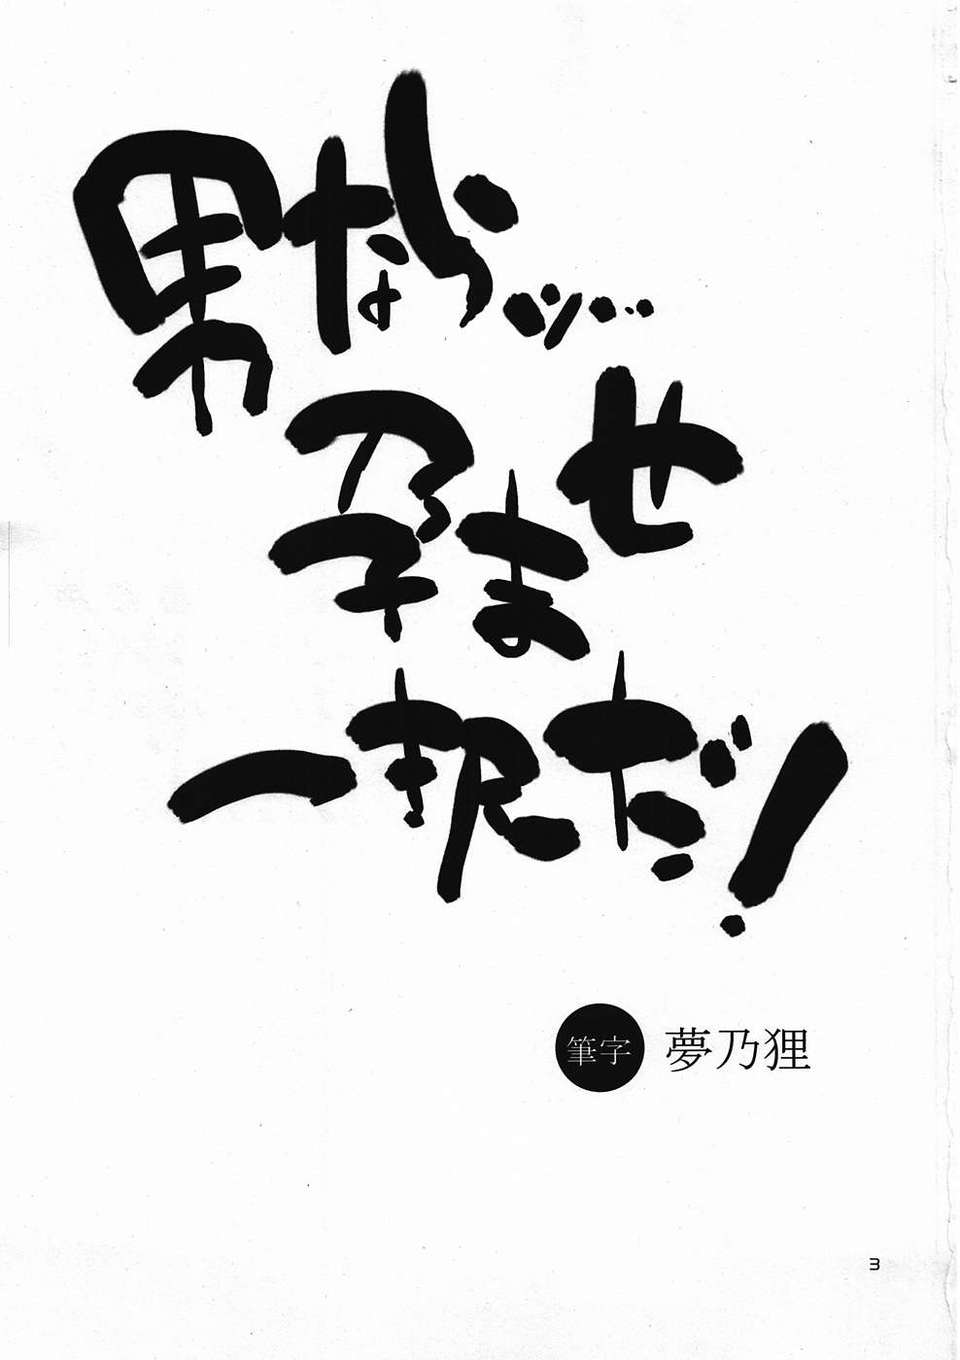 男ならッ…
孕ませ
一択だ!
筆字 夢乃狸
3